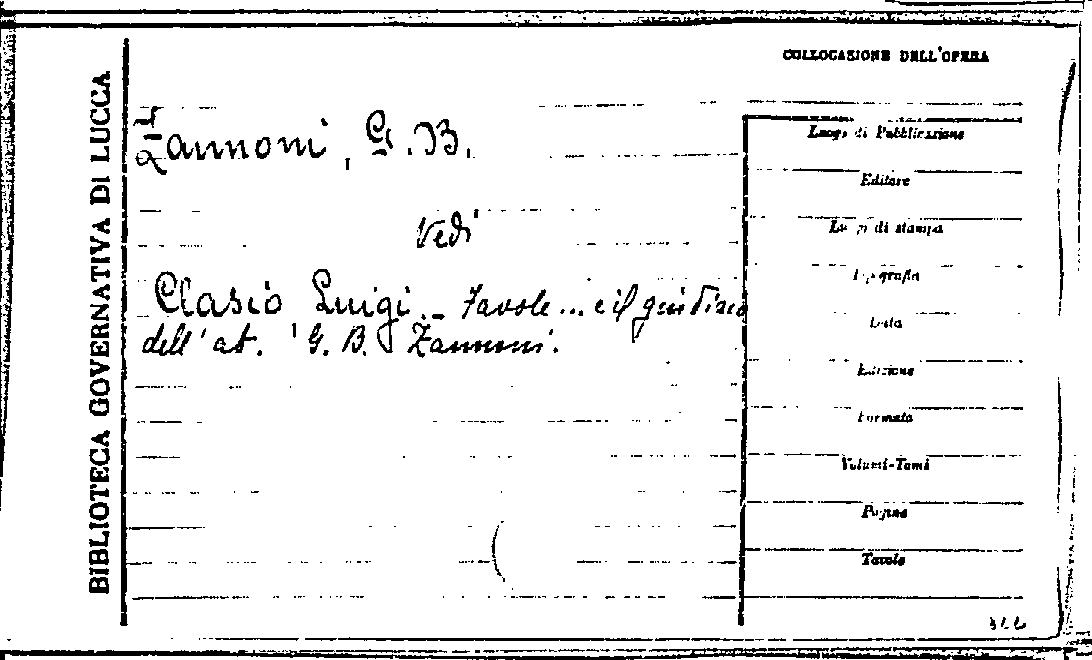 BIBLIOTECA GOVERNATIVA DI LUCCA
COLLOCAZIONE DELL'OPERA
Zannoni, G. B.
Vedi
Clasio Luigi. - Favole... e il giudizio
dell'ab. G. B. Zannoni.
Luogo di Pubblicazione
Editore
Luogo di stampa
Tipografia
Data
Edizione
Formato
Volumi-Tomi
Pagine
Tavole